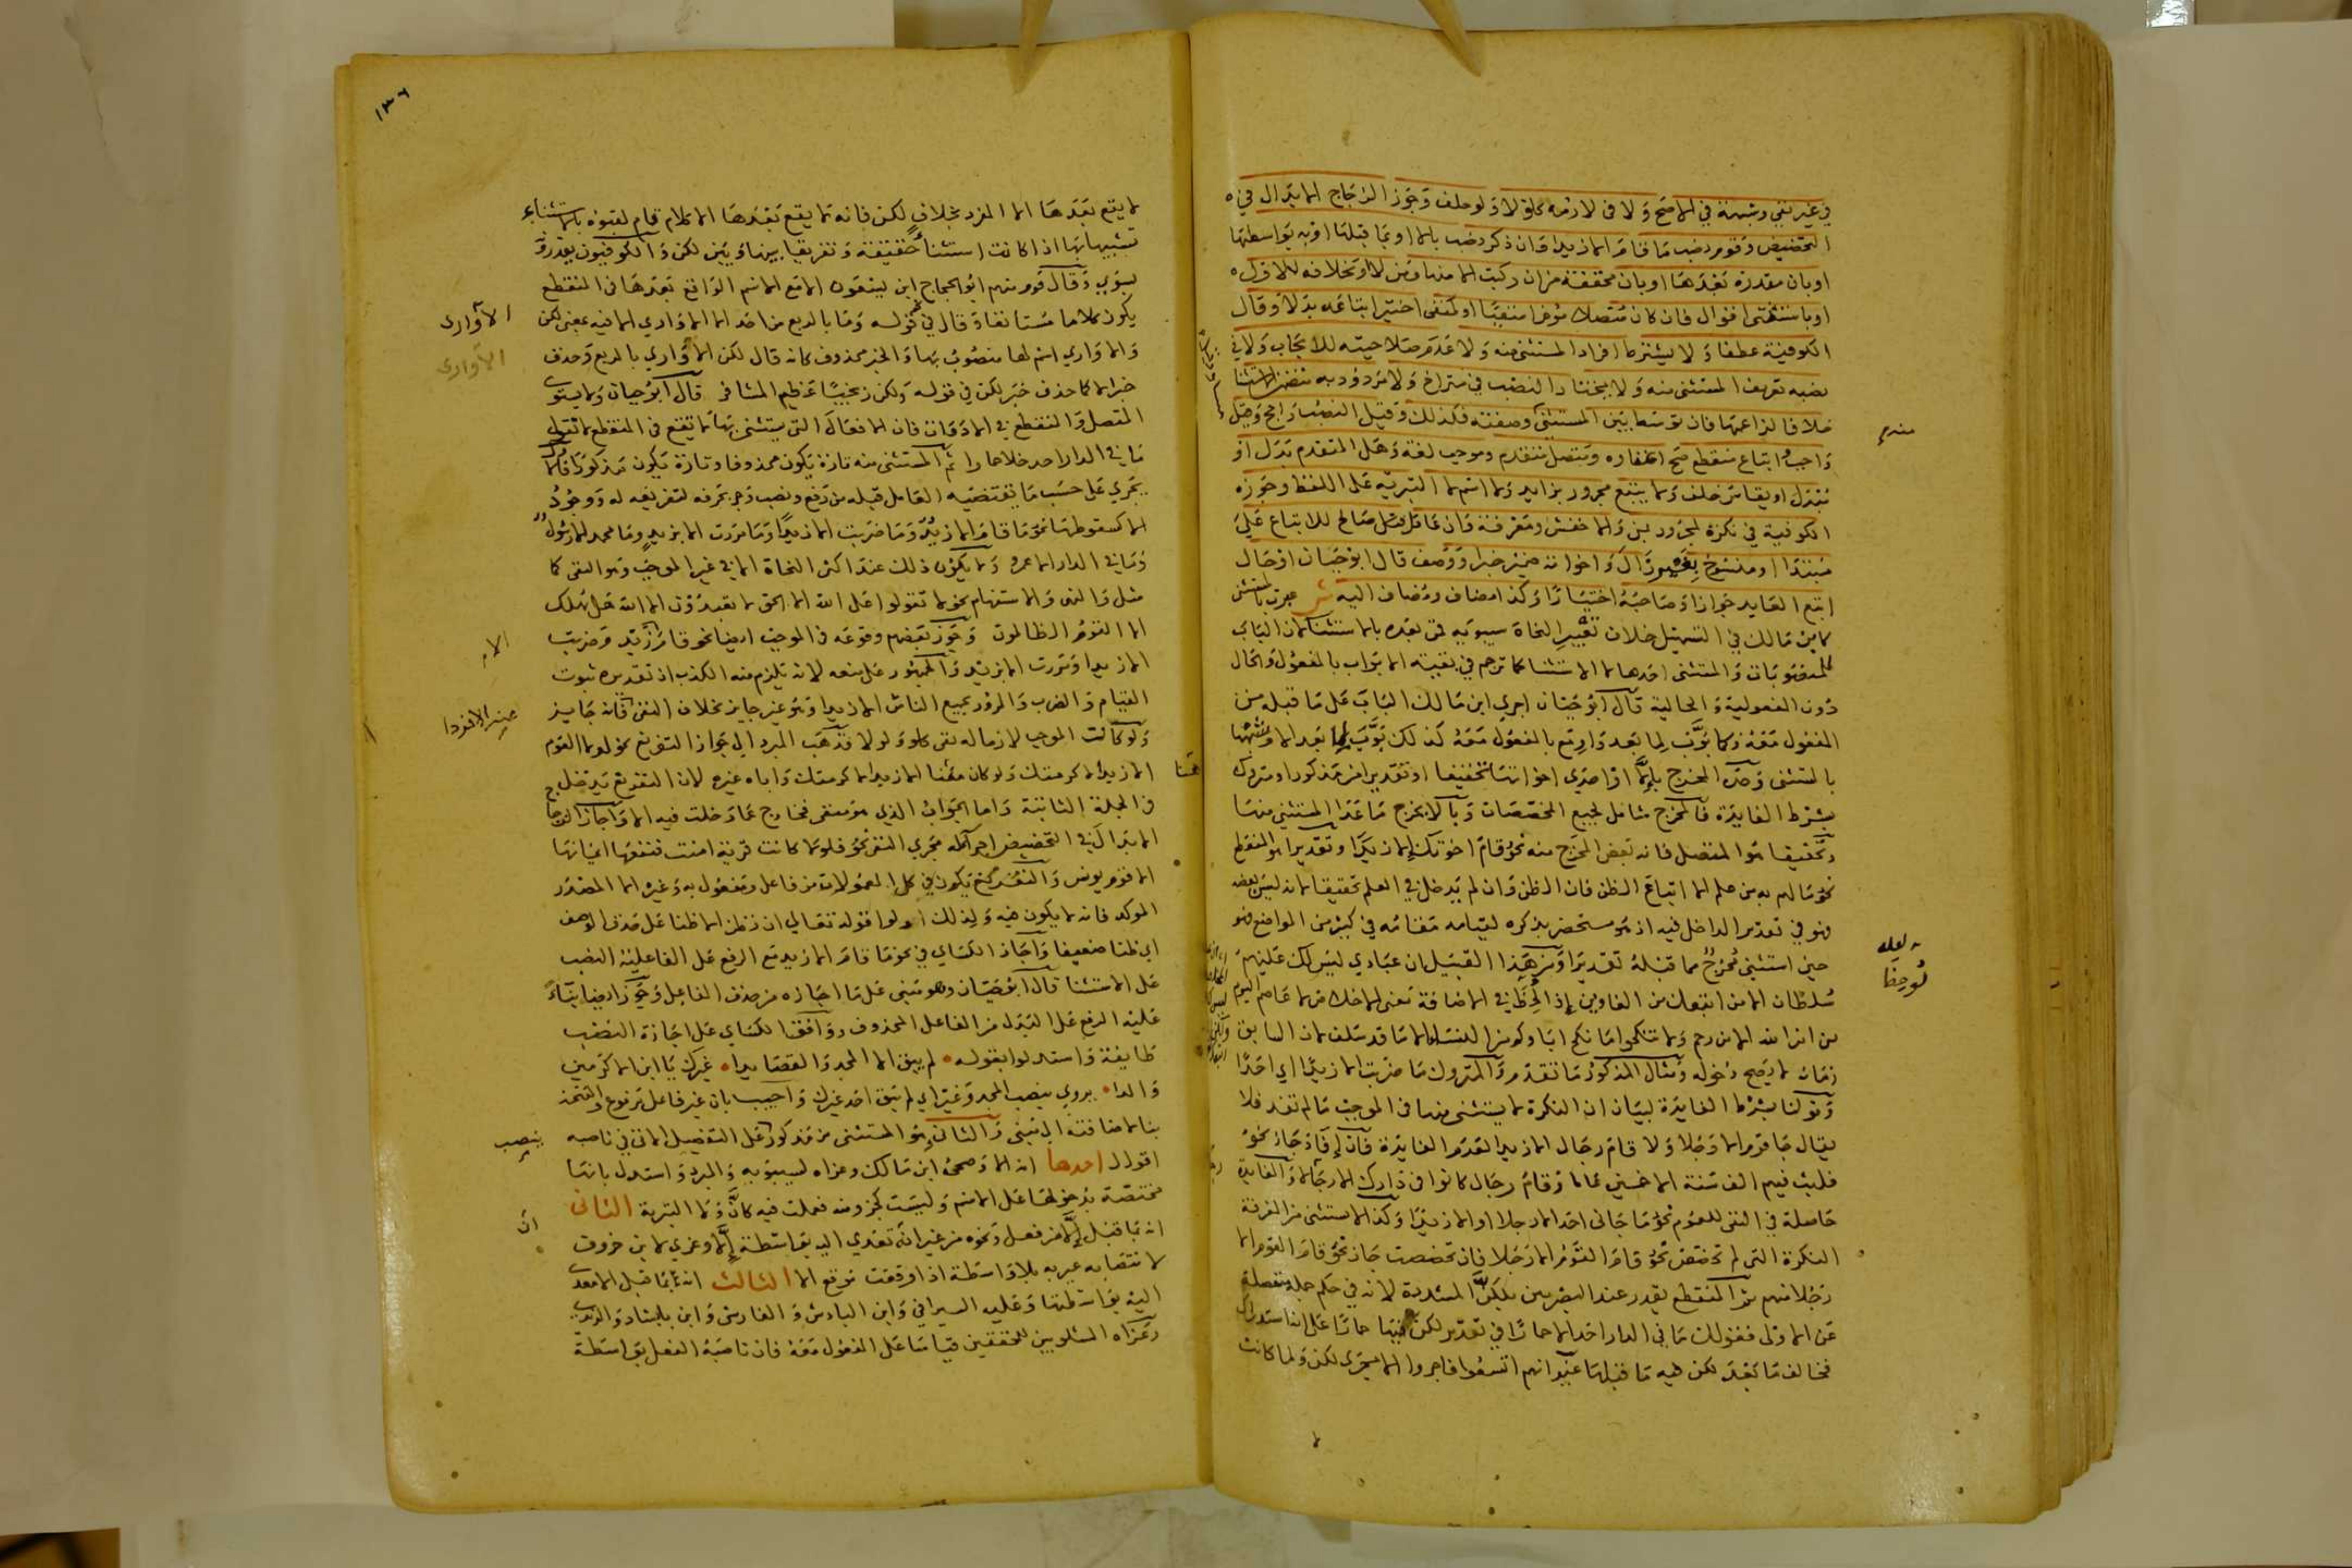 في غير نفي وشبهه في الاصح ولا في لازمه كلو لا ولو خلف وجوز الزجاج الابدال في
التحضيض وقوم نصب ما قام الا زيدا وان ذكر نصب بالا او بما قبلها او به بواسطتها
او بان مقدرة بعدها او بان مخففة من ان ركبت الا منها ومن لا او بخلافه للاول
او باستثنى اقوال فان كان متصلا مؤخرا منفيا او كنفي اختير اتباعه بدلا وقال
الكوفية عطفا ولا يشترط افراد المستثنى منه ولا عدم صلاحيته للايجاب ولا في
نصبه تعريف المستثنى منه ولا يختار النصب في متراخ ولا مردود به متضمن الاستثنا
خلافا لزاعمها فان توسط بين المستثنى وصفته فكذلك وقيل النصب راجح وقيل
واجب اتباع منقطع صح اغفاره ومتصل متقدم وموجب لغة وهل المتقدم بدل او
مبدل او يقاس خلف ولا يتبع مجرور بزايد ولا اسم لا التبرية على اللفظ وجوزه
الكوفية في نكرة لمجرور بمن والاخفش ومعرفة وان عاد قبل صالح للاتباع على
مبتدا او منسوخ بغير زال واخواته ضمير خبر او وصف قال ابو حيان او حال
اتبع العايد جوازا وصاحبه اختيارا وكذا مضاف ومضاف اليه ش عبرت بالمستثنى
كابن مالك في التسهيل خلاف تعبير النحاة سيبويه فمن بعده بالاستثنا لان الباب
للمنصوبات والمستثنى احدها لا الاستثنا كما ترجم في بقية الابواب بالمفعول والحال
دون المفعولية والحالية قال ابو حيان اجرى ابن مالك الباب على ما قبله من
المفعول معه فكما بوب لما بعد واو مع بالمفعول معه كذلك بوب لما بعد الا وشبهها
بالمستثنى وحده المخرج بالا او احدى اخواتها تحقيقا او تقديرا من مذكور او متروك
بشرط الفايدة فالمخرج شامل لجميع المخصصات وبالا يخرج ما عدا المستثنى منها
وتحقيقا هو المتصل فانه بعض المخرج منه نحو قام اخوتك الا زيدا وتقديرا هو المنقطع
نحو ما لهم به من علم الا اتباع الظن فان الظن وان لم يدخل في العلم تحقيقا لانه ليس بعضه
فهو في تقدير الداخل فيه اذ هو مستحضر بذكره لقيامه مقامه في كثير من المواضع فهو
حين استثنى مخرج مما قبله تقديرا ومن هذا القبيل ان عبادي ليس لك عليهم
سلطان الا من اتبعك من الغاوين اذ لحظ في الاضافة معنى الاخلاص لا عاصم اليوم
من امر الله الا من رحم ولا تنكحوا ما نكح اباؤكم من النساء الا ما قد سلف لان السابق
زمانه لا يصح دخوله ومثال المذكور ما تقدم والمتروك ما ضربت الا زيدا اي احدا
وقولنا بشرط الفايدة لبيان ان النكرة لا يستثنى منها في الموجب ما لم تفد فلا
يقال جا قوم الا رجلا ولا قام رجال الا زيدا لعدم الفايدة فان افاد جاز نحو
فلبث فيهم الف سنة الا خمسين عاما وقام رجال كانوا في دارك الا رجلا والفايدة
حاصلة في النفي للعموم نحو ما جاني احد الا رجلا او الا زيدا وكذا لا يستثنى من المعرفة
النكرة التي لم تخصص نحو قام القوم الا رجلا فان تخصصت جاز نحو قام القوم الا
رجلا منهم ثم المنقطع يقدر عند البصريين بلكن المشددة لانه في حكم جملة منفصلة
عن الاولى فقولك ما في الدار احد الا حمارا في تقدير لكن فيها حمارا على انه استدراك
فخالف ما بعد لكن فيه ما قبلها غير انهم اتسعوا فاجروا الا مجرى لكن ولما كانت
١٣٦
لا يقع بعدها الا المفرد بخلاف لكن فانه لا يقع بعدها الا كلام تام لقبوه بالاستثناء
تشبيها بها اذا كانت استثنا حقيقة وتفريقا بينها وبين لكن والكوفيون يقدرونه
بسوى وقال قوم منهم ابو الحجاج ابن يسعون الا مع الاسم الواقع بعدها في المنقطع
يكون كلاما مستانفا وقال في قوله وما بالربع من احد الا الاواري الا فيه بمعنى لكن
والاواري اسم لها منصوب بها والخبر محذوف كانه قال لكن الاواري بالربع وحذف
خبر الا كما حذف خبر لكن في قوله ولكن زنجيا عظيم المشافر قال ابو حيان ولا يستوي
المتصل والمنقطع في الادوات فان الافعال التي يستثنى بها لا تقع في المنقطع لا تقول
ما في الدار احد خلا حمارا ثم المستثنى منه تارة يكون محذوفا وتارة يكون مذكورا فالاول
يجري على حسب ما يقتضيه العامل قبله من رفع ونصب وجر بحرفه لتفريغه له ووجود
الا كسقوطها نحو ما قام الا زيد وما ضربت الا زيدا وما مررت الا بزيد وما محمد الا رسول
وما في الدار الا عمرو ولا يكون ذلك عند اكثر النحاة الا في غير الموجب وهو النفي كما
مثل والنهي والاستفهام نحو لا تقولوا على الله الا الحق لا يعبدون الا الله هل يهلك
الا القوم الظالمون وجوز بعضهم وقوعه في الموجب ايضا نحو قام الا زيد وضربت
الا زيدا ومررت الا بزيد والجمهور على منعه لانه يلزم منه الكذب اذ تقديره ثبوت
القيام والضرب والمرور بجميع الناس الا زيدا وهو غير جايز بخلاف النفي فانه جايز
ولو كانت الموجب لازما له نفي كلو ولولا فذهب المبرد الى جواز التفريغ نحو لولا القوم
الا زيد لاكرمتك ولو كان معنا الا زيد لاكرمتك واباه غيره لان التفريغ يدخل
في الجملة الثابتة واما الجواب الذي هو منفي فخارج عما دخلت فيه الا واجاز الزجاج
الابدال في التحضيض اجراله مجرى النفي نحو فلولا كانت قرية امنت فنفعها ايمانها
الا قوم يونس والتفريغ يكون في كل المعمولات من فاعل ومفعول به وغيره الا المصدر
الموكد فانه لا يكون فيه ولذلك اولوا قوله تعالى ان نظن الا ظنا على حذف الوصف
اي ظنا ضعيفا واجاز الكساي في نحو ما قام الا زيد مع الرفع على الفاعلية النصب
على الاستثنا قال ابو حيان وهو مبني على ما اجازه من حذف الفاعل وجوز ايضا بناء
عليه الرفع على البدل من الفاعل المحذوف ووافق الكساي على اجازة النصب
طايفة واستدلوا بقوله • لم يبق الا المجد والقصايدا • غيرك يا ابن الاكرمين
والدا • يروى بنصب المجد وغير اي لم يبق احد غيرك واجيب بان غير فاعل مرفوع والفتحة
بنا لاضافته الى مبني والثاني هو المستثنى من مذكور على التفصيل الاتي في ناصبه
اقوال احدها انه الا وصححه ابن مالك وعزاه لسيبويه والمبرد واستدل بانها
مختصة بدخولها على الاسم وليست كجزء منه فعملت فيه كان ولا التبرية الثاني
انه بما قبل الا من فعل ونحوه من غير انه تعدى اليه بواسطة الا وعزي لابن خروف
لانتصاب غير به بلا واسطة اذا وقعت موقع الا الثالث انه بما قبل الا معدى
اليه بواسطتها وعليه السيرافي وابن الباذش والفارسي وابن بابشاذ والرندي
وعزاه الشلوبين للمحققين قياسا على المفعول معه فان ناصبه الفعل بواسطة
الآوارى
الاوارى
الا
ينصب
ان